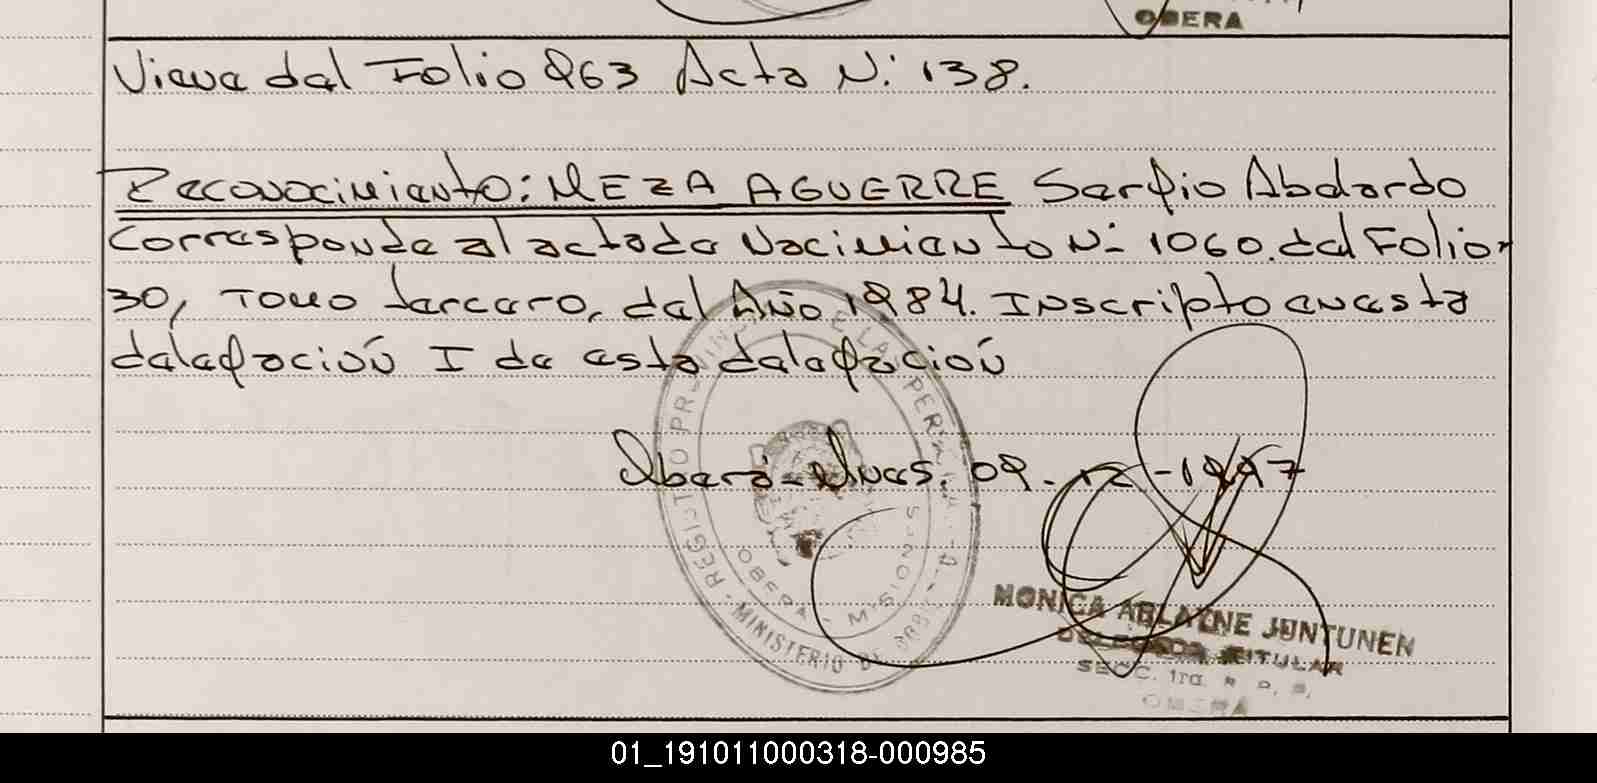 OBERA
Viene del Folio 963 Acta N: 138.
Reconocimiento: MEZA AGUERRE Sergio Abelardo
Corresponde al acta de Nacimiento N- 1060. del Folio
30, Tomo tercero, del Año 1984. Inscripto en esta
delegación I de esta delegación
Oberá - Mnes. 09 - 12 - 1997
REGISTRO PROVINCIAL DE LAS PERSONAS
MINISTERIO DE
OBERA - MISIONES
MONICA ABLAYNE JUNTUNEN
DELEGADA TITULAR
SECC. 1ra. R. P. P.
OBERA
01_191011000318-000985